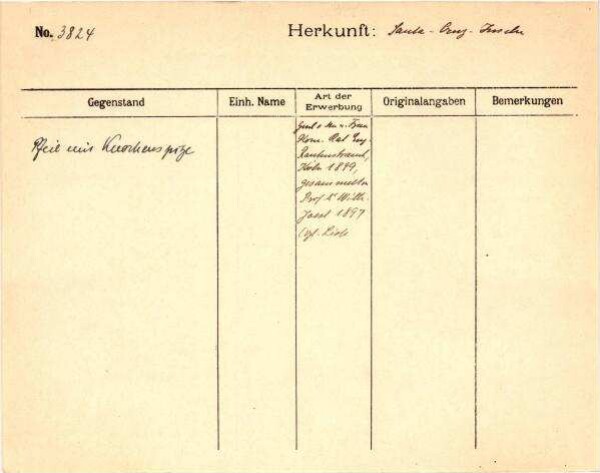 No. 3824
Herkunft: Santa-Cruz-Inseln
Gegenstand
Einh. Name
Art der
Erwerbung
Originalangaben
Bemerkungen
Pfeil mit Knochenspitze
Gesch. v. Hrn. u. Frau
Kom. Rat Eug.
Rautenstrauch,
Köln 1899,
gesammelt v.
Prof. Dr. Wilh.
Joest 1897
(vgl. Liste